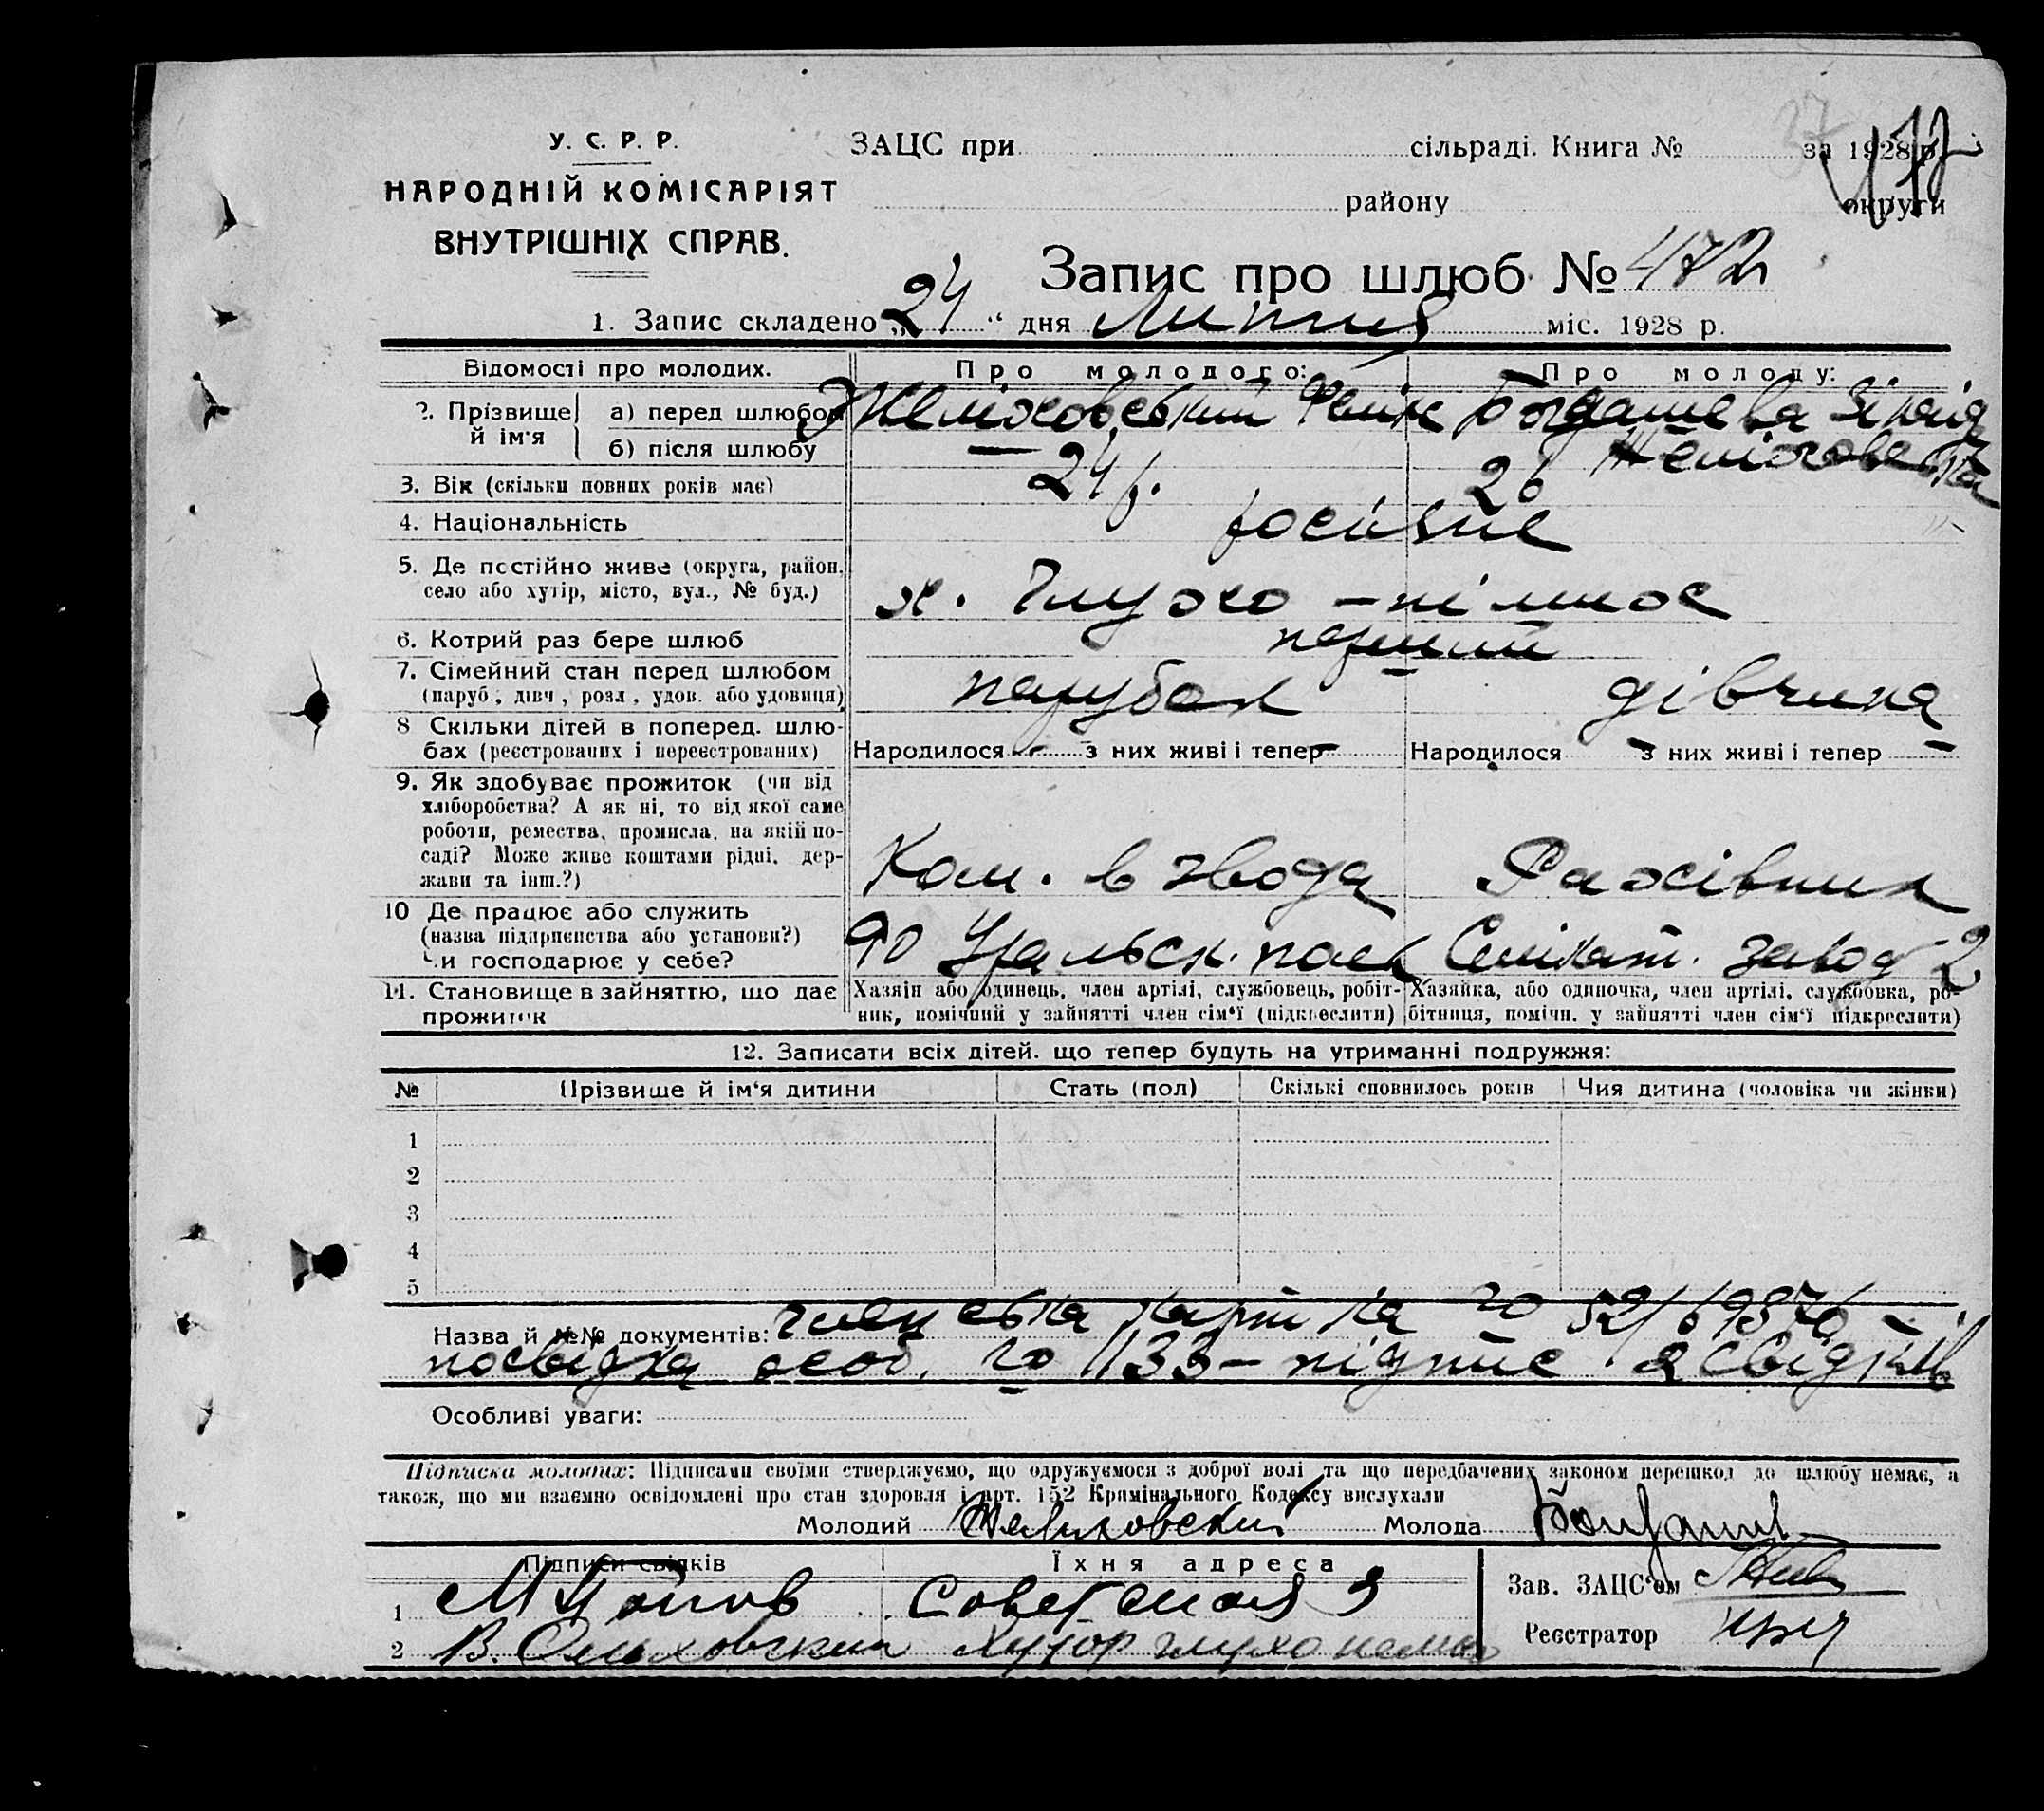 У. С. Р. Р.
НАРОДНІЙ КОМІСАРІЯТ
ВНУТРІШНІХ СПРАВ.
ЗАЦС при сільраді. Книга № за 1928 р.
району округи
Запис про шлюб № 472
1. Запис складено „24“ дня Липня міс. 1928 р.
Відомості про молодих. Про молодого: Про молоду:
2. Прізвище й ім'я
а) перед шлюбом Желіховський Фелік Богдашева Зінаід
б) після шлюбу — Желіховська
3. Вік (скільки повних років має) 24 р. 26
4. Національність росіяне
5. Де постійно живе (округа, район, село або хутір, місто, вул., № буд.) х. Глухо-німих
6. Котрий раз бере шлюб перший
7. Сімейний стан перед шлюбом (паруб., дівч., розл., удов. або удовиця) парубок дівчина
8 Скільки дітей в поперед. шлюбах (реєстрованих і нереєстрованих) Народилося — з них живі і тепер — Народилося — з них живі і тепер —
9. Як здобуває прожиток (чи від хліборобства? А як ні, то від якої саме роботи, ремества, промисла, на якій посаді? Може живе коштами рідні, держави та інш.?) Ком. взвода Рахівник
10 Де працює або служить (назва підприємства або установи?) Чи господарює у себе? 90 Уральск. полк Силікат. завод 2
11. Становище в зайняттю, що дає прожиток
Хазяїн або одинець, член артілі, службовець, робітник, помічний у зайнятті член сім'ї (підкреслити)
Хазяйка, або одиночка, член артілі, службовка, робітниця, помічн. у зайнятті член сім'ї підкреслити)
12. Записати всіх дітей, що тепер будуть на утриманні подружжя:
№ Прізвище й ім'я дитини Стать (пол) Скількі сповнилось років Чия дитина (чоловіка чи жінки)
1
2
3
4
5
Назва й №№ документів: членська картка
посвідка особ. 1133 — підпис 2 свідків
Особливі уваги:
Підписка молодих: Підписами своїми стверджуємо, що одружуємося з доброї волі та що передбачених законом перешкод до шлюбу немає, а
також, що ми взаємно освідомлені про стан здоровля і арт. 152 Кримінального Кодексу вислухали
Молодий Желиховский Молода
Підписи свідків Їхня адреса
1 Советская 9
2 В. Хутор глухонемых
Зав. ЗАЦС'ом
Реєстратор